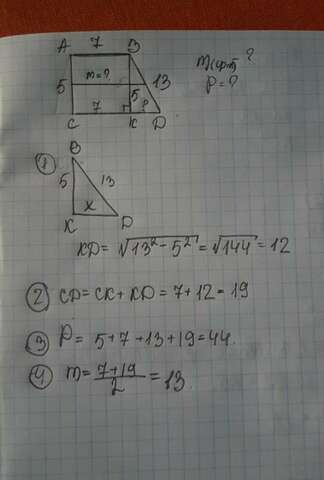 A 7 B
m=? 5 13
5
7 ?
C K D
m(ср.л) ?
P = ?
1
B
5 13
x
K D
KD = √13² - 5² = √144 = 12
2 CD = CK + KD = 7 + 12 = 19
3 P = 5 + 7 + 13 + 19 = 44.
4 m = 7+19/2 = 13